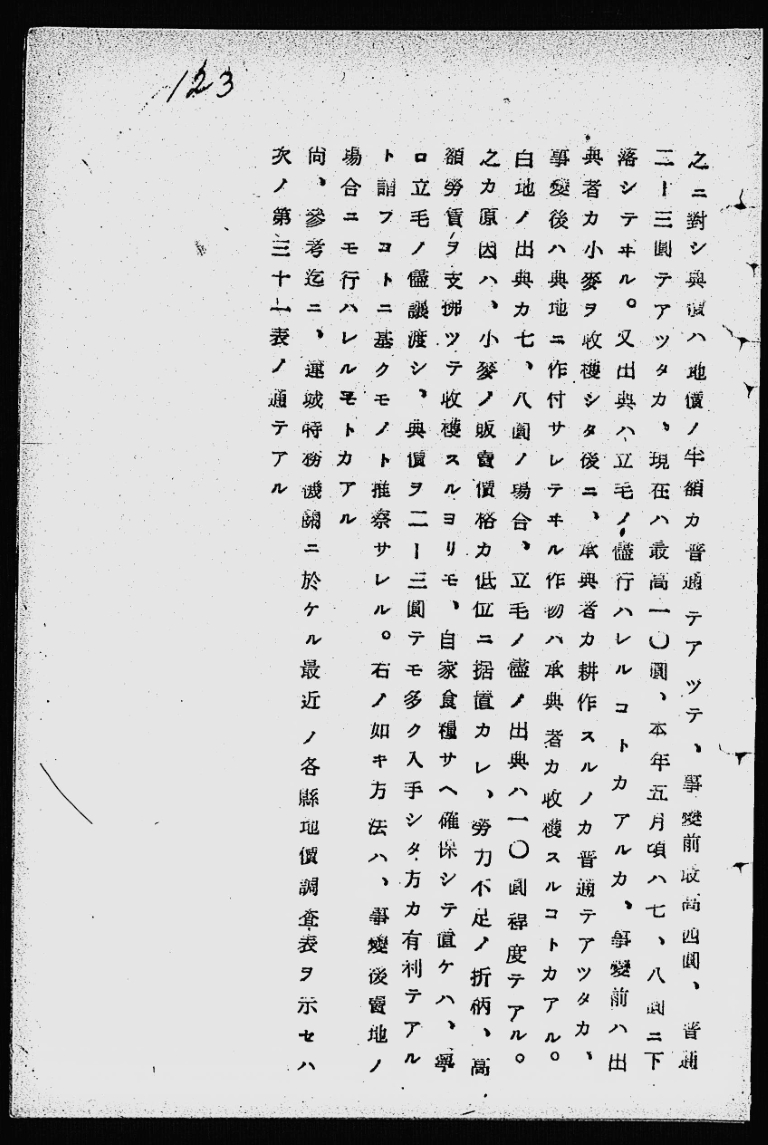 123
之ニ對シ典價ハ地價ノ半額カ普通テアツテ、事變前最高四圓、普通
二ー三圓テアツタカ、現在ハ最高一〇圓、本年五月頃ハ七、八圓ニ下
落シテヰル。又出典ハ立毛ノ儘行ハレルコトカアルカ、事變前ハ出
典者カ小麥ヲ收穫シタ後ニ、承典者カ耕作スルノカ普通テアツタカ、
事變後ハ典地ニ作付サレテヰル作物ハ承典者カ收穫スルコトカアル。
白地ノ出典カ七、八圓ノ場合、立毛ノ儘ノ出典ハ一〇圓程度テアル。
之カ原因ハ、小麥ノ販賣價格カ低位ニ据置カレ、勞力不足ノ折柄、高
額勞賃ヲ支拂ツテ收穫スルヨリモ、自家食糧サヘ確保シテ置ケハ、寧
ロ立毛ノ儘讓渡シ、典價ヲ二ー三圓テモ多ク入手シタ方カ有利テアル
ト謂フコトニ基クモノト推察サレル。右ノ如キ方法ハ、事變後賣地ノ
場合ニモ行ハレルモトカアル
尙、參考迄ニ、運城特務機關ニ於ケル最近ノ各縣地價調査表ヲ示セハ
次ノ第三十一表ノ通テアル